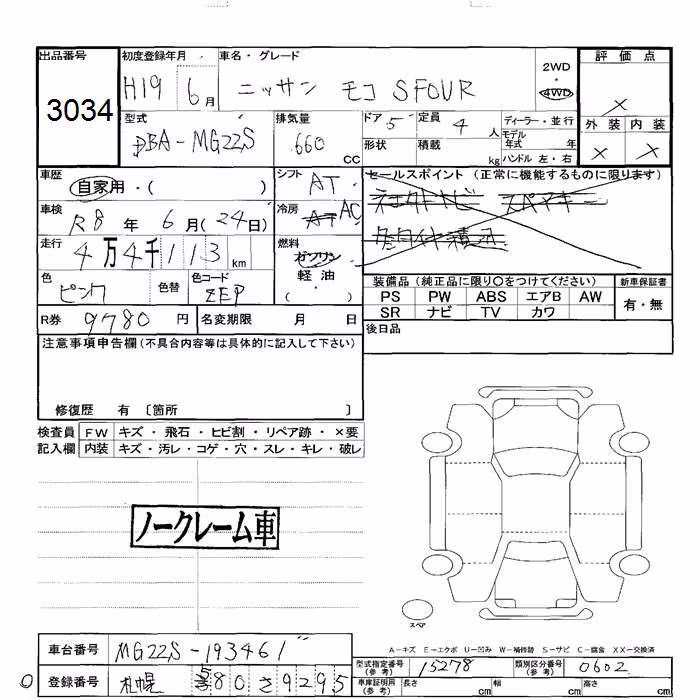 出品番号 初度登録年月 車名・グレード 2WD 評価点
3034 H19 6月 ニッサン モコ SFOUR 4WD ×
型式 排気量 ドア 5 定員 4 人 ディーラー・並行 外装 内装
DBA-MG22S 660 cc 形状 積載 kg モデル年式 年 ハンドル 左・右 × ×
車歴 自家用・( ) シフト AT セールスポイント (正常に機能するものに限ります)
車検 R8年 6月(24日) 冷房 AC
走行 4万4千113km 燃料 ガソリン 軽油 ( )
装備品 (純正品に限り○をつけてください) 新車保証書
色 ピンク 色替 色コード ZEP
PS PW ABS エアB AW 有・無
SR ナビ TV カワ
R券 9780円 名変期限 月 日 後日品
注意事項申告欄(不具合内容等は具体的に記入して下さい)
修復歴 有 〔箇所 〕
検査員 FW キズ・飛石・ヒビ割・リペア跡・×要
記入欄 内装 キズ・汚レ・コゲ・穴・スレ・キレ・破レ
ノークレーム車
スペア
A-キズ E-エクボ U-凹み W-補修跡 S-サビ C-腐食 XX-交換済
車台番号 MG22S-193461 型式指定番号(参考) 15278 類別区分番号(参考) 0602
登録番号 札幌 580 さ 9295 車庫証明用(参考) 長さ cm 幅 cm 高さ cm